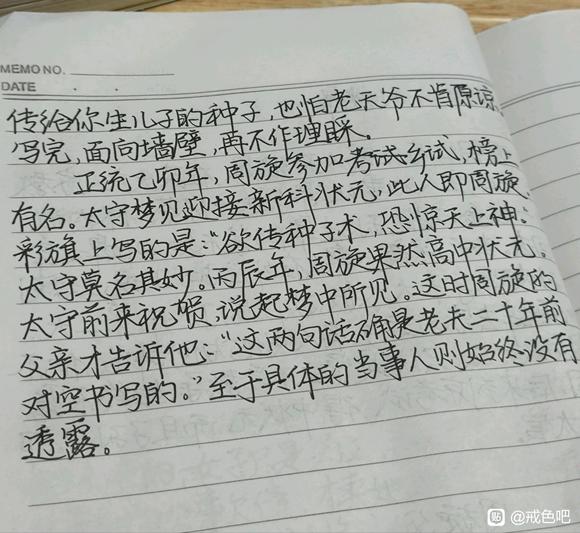 MEMO NO.
DATE
传给你生儿子的种子，也怕老天爷不肯原谅。
写完，面向墙壁，再不作理睬。
正统乙卯年，周旋参加考试乡试，榜上
有名。太守梦见迎接新科状元，此人即周旋，
彩旗上写的是：“欲传种子术，恐惊天上神。
太守莫名其妙。丙辰年，周旋果然高中状元。
太守前来祝贺，说起梦中所见。这时周旋的
父亲才告诉他：“这两句话确是老夫二十年前
对空书写的。”至于具体的当事人则始终没有
透露。
贴 @戒色吧